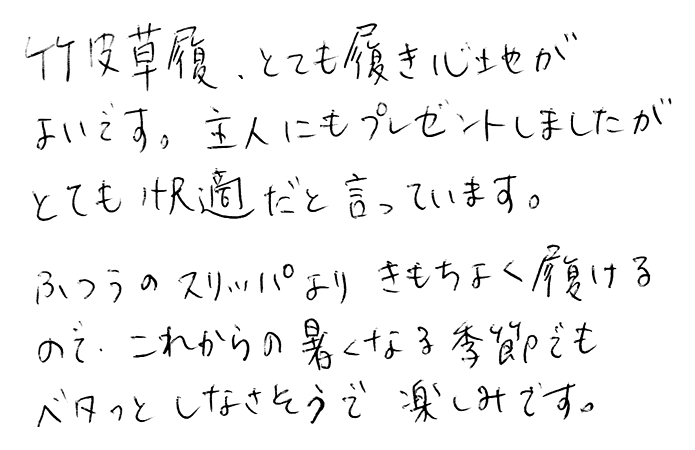 竹皮草履、とても履き心地が
よいです。主人にもプレゼントしましたが
とても快適だと言っています。
ふつうのスリッパより きもちよく履ける
ので、これからの暑くなる季節でも
ベタっとしなさそうで 楽しみです。